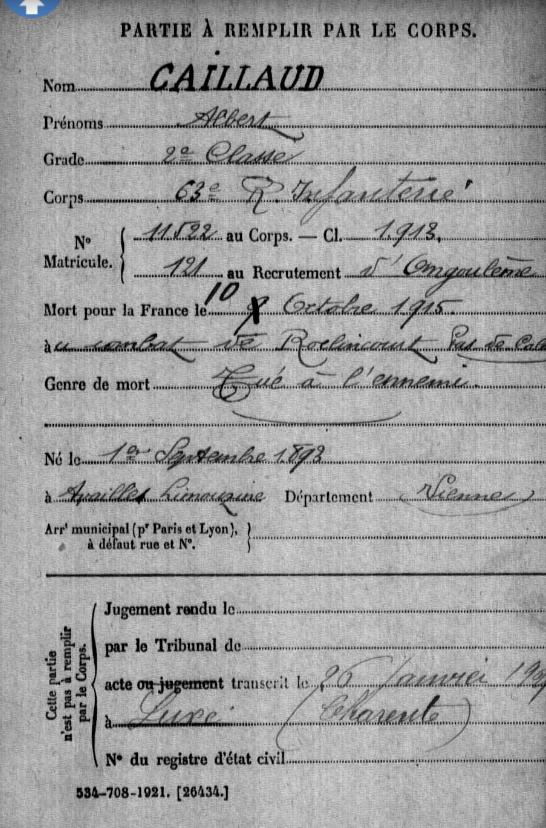 PARTIE À REMPLIR PAR LE CORPS.
Nom CAILLAUD
Prénoms Albert
Grade 2e Classe
Corps 63e R. Infanterie
N° Matricule. { 11522 au Corps. — Cl. 1913.
121 au Recrutement d'Angoulême
Mort pour la France le 10 Octobre 1915.
à u combat de Roclincourt Pas de Cala
Genre de mort Tué à l'ennemi.
Né le 1er Septembre 1893
à Availles Limouzine Département Vienne
Arrt municipal (pr Paris et Lyon), }
à défaut rue et N°.
Cette partie n'est pas à remplir par le Corps.
Jugement rendu le
par le Tribunal de
acte ou jugement transcrit le 26 Janvier
à Luxé (Charente)
N° du registre d'état civil
534-708-1921. [26434.]